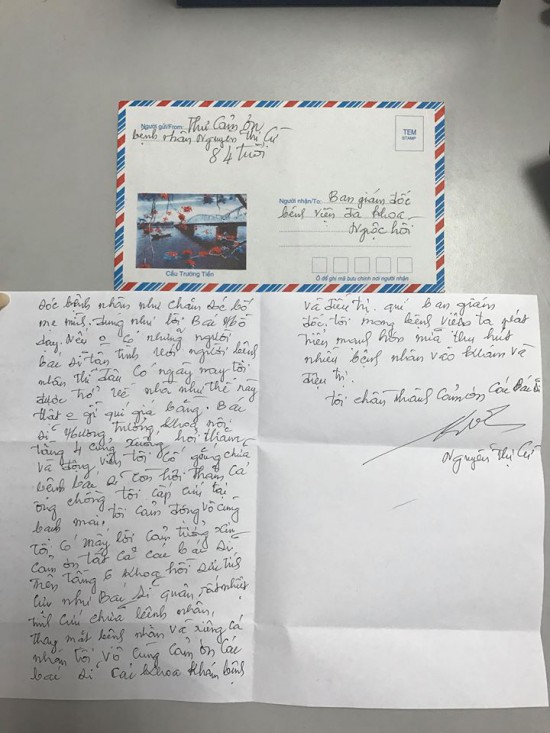 Người gửi/From:
Thư cảm ơn
bệnh nhân Nguyễn Thị Cử
84 tuổi
TEM
STAMP
Người nhận/To:
Ban giám đốc
bệnh viện đa khoa
Ngọc hồi
Cầu Trường Tiền
Ô để ghi mã bưu chính nơi người nhận
sóc bệnh nhân như chăm sóc bố
mẹ mình. đúng như lời Bác Hồ
dạy. nếu o có những người
bác sĩ tận tình với người bệnh
thì đâu có ngày may tôi
được trở về nhà như thế này
thật o gì quí giá bằng. Bác
sĩ trưởng khoa nội
tầng 4 cũng xuống hỏi thăm
và động viên tôi cố gắng chữa
bệnh bác sĩ còn hỏi thăm cả
ông chồng tôi cấp cứu tại
bạch mai. tôi cảm động vô cùng
tôi có mấy lời cảm tưởng xin
cảm ơn tất cả các bác sĩ
trên tầng 6 khoa hồi sức tích
cực như Bác sĩ quân rất nhiệt
tình cứu chữa bệnh nhân,
thay mặt bệnh nhân và riêng cá
nhân tôi vô cùng cảm ơn các
bác sĩ các khoa khám bệnh
và điều trị. quí ban giám
đốc. tôi mong bệnh viện ta phát
triển mạnh hơn nữa thu hút
nhiều bệnh nhân vào khám và
điều trị.
tôi chân thành cảm ơn các bác sĩ
Nguyễn Thị Cử